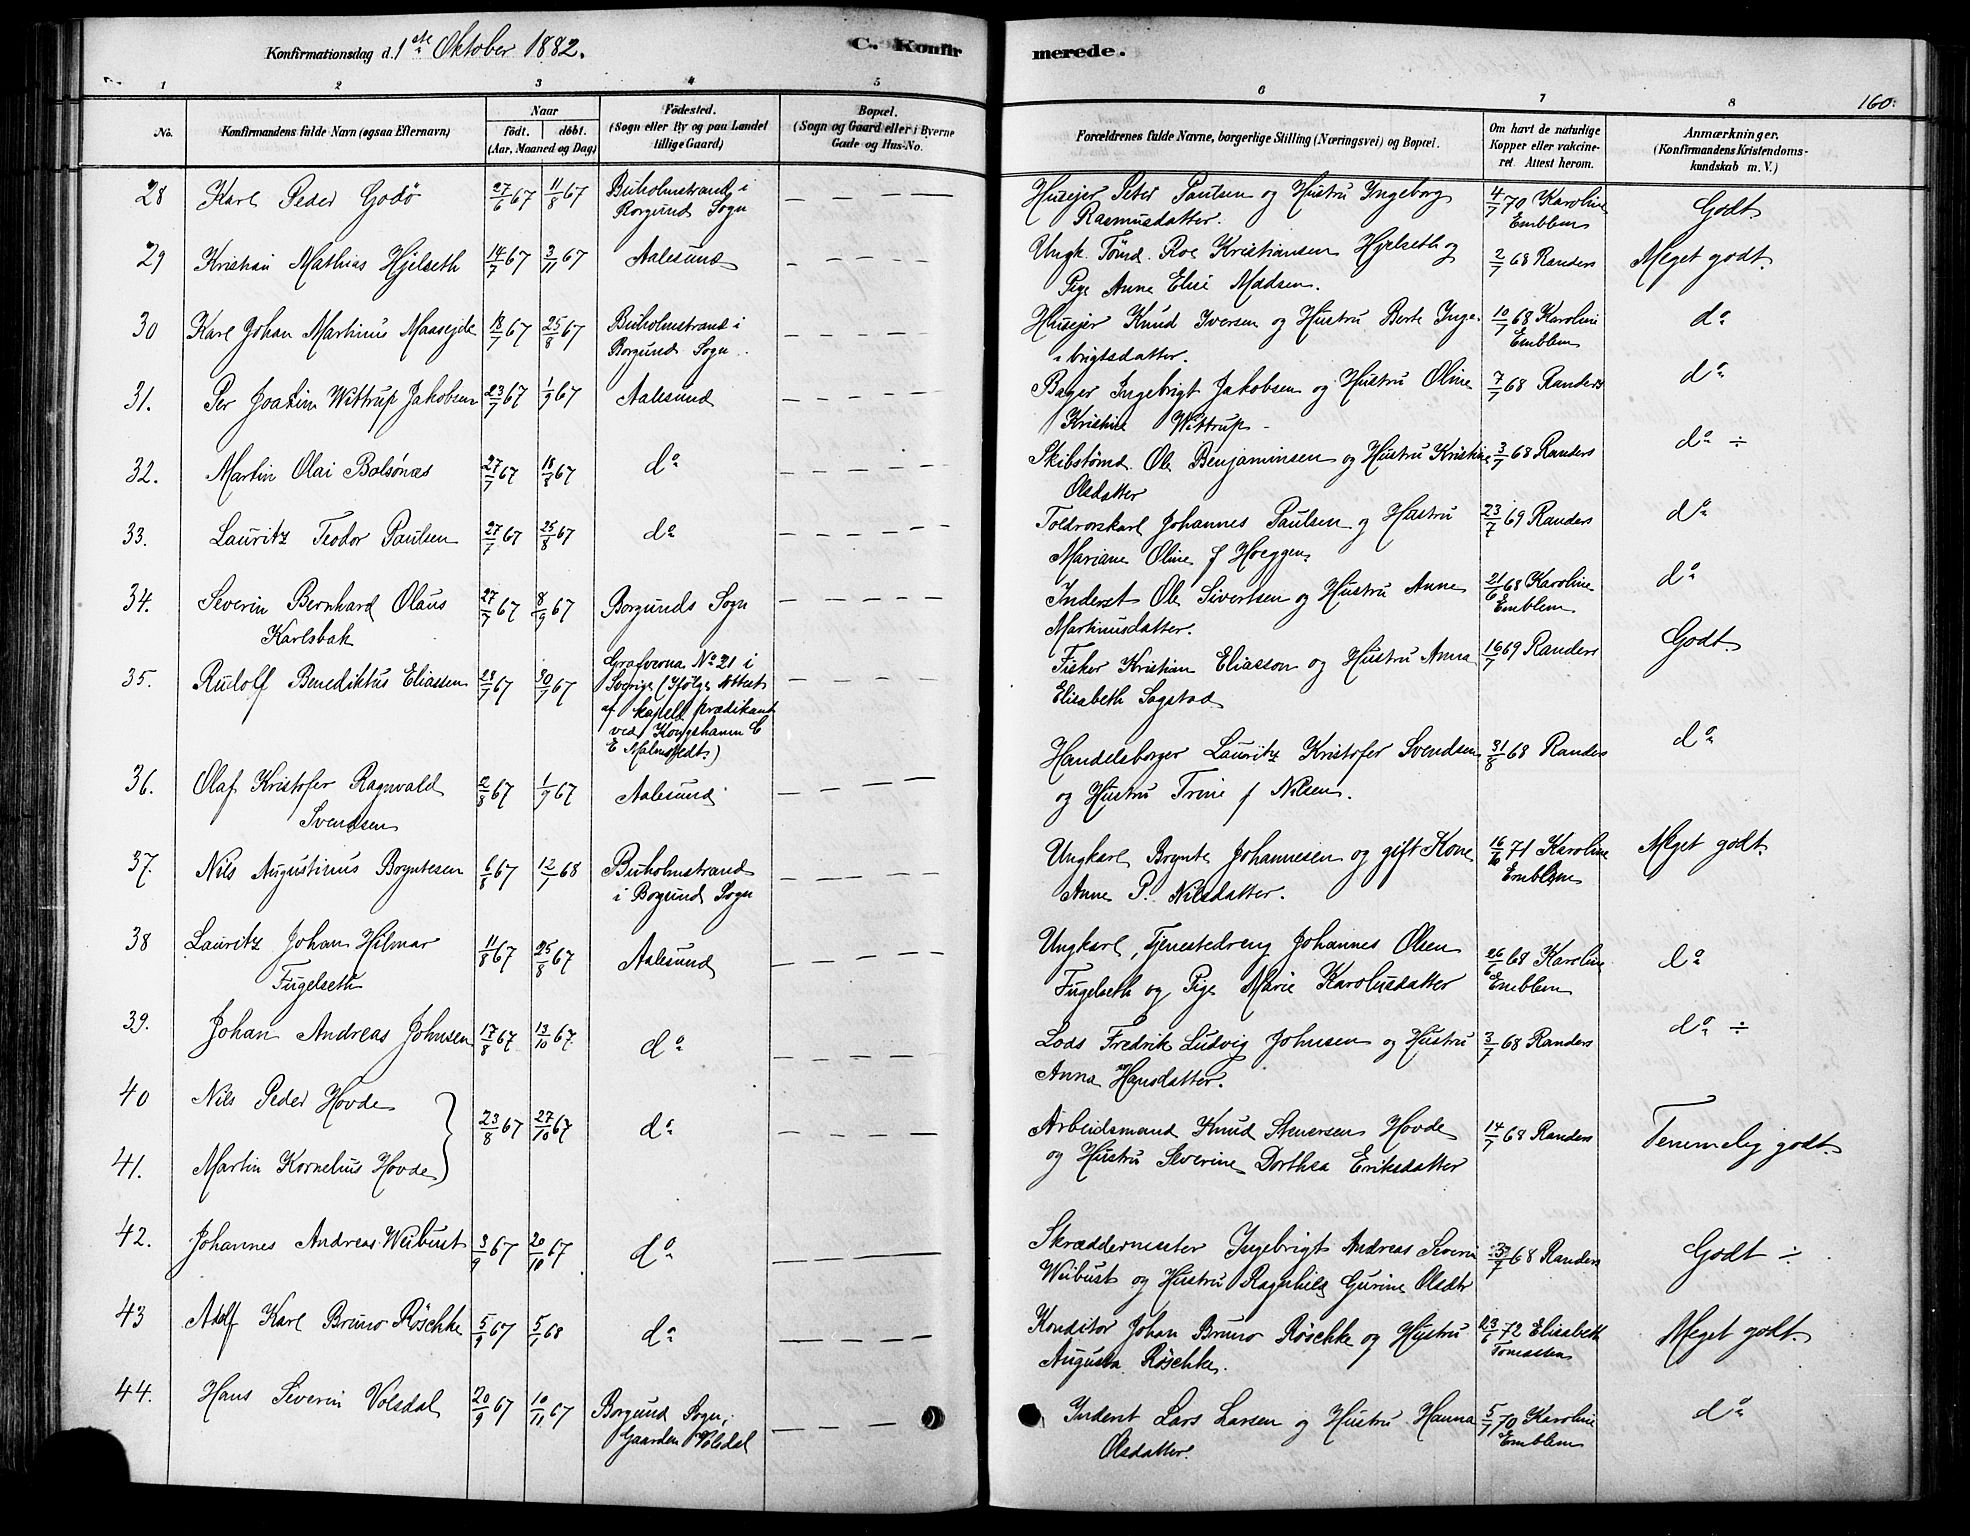 Konfirmationsdag d. 1ste Oktober 1882.
C. Konfirmerede.
160.
1 2 3 4 5 6 7 8
No.
Konfirmandens fulde Navn (ogsaa Efternavn)
Naar
født. døbt.
(Aar, Maaned og Dag)
Fødested.
(Sogn eller By og paa Landet
tillige Gaard)
Bopæl.
(Sogn og Gaard eller i Byerne
Gade og Hus-No.
Forældrenes fulde Navne, borgerlige Stilling (Næringsvei) og Bopæl.
Om havt de naturlige
Kopper eller vakcine-
ret. Attest herom.
Anmærkninger.
(Konfirmandens Kristendoms-
kundskab m. V.)
28 Karl Peder Godø 27/6 67 11/8 67 Buholmstrand i
Borgund Sogn
Huseier Peter Paulsen og Hustru Ingeborg
Rasmusdatter.
4/7 70 Karoline
Emblem
Godt
29 Kristian Mathias Hjelseth 14/7 67 3/11 67 Aalesund
Ungk. Tømd. Roe Kristiansen Hjelseth og
Pige Anne Elise Madsen.
2/7 68 Randers
Meget godt.
30 Karl Johan Martinus Maaseide 18/7 67 25/8 67 Buholmstrand i
Borgund Sogn
Huseier Knud Iversen og Hustru Berte Inge-
brigtsdatter.
10/7 68 Karoline
Emblem
do
31. Per Joakim Wittrup Jakobsen 23/7 67 1/9 67 Aalesund
Bager Ingebrigt Jakobsen og Hustru Oline
Kristine Wittrup
7/7 68 Randers
do
32. Martin Olai Bolsønæs 27/7 67 18/8 67 do
Skibstømd. Ole Benjaminsen og Hustru Kristine
Olsdatter
3/7 68 Randers
do ÷
33. Lauritz Teodor Paulsen 27/7 67 25/8 67 do
Toldrorskarl Johannes Paulsen og Hustru
Mariane Oline f Hoeggen.
23/7 69 Randers
do
34. Severin Bernhard Olaus
Karlsbak
27/7 67 8/9 67 Borgunds Sogn
Inderst Ole Sivertsen og Hustru Anne
Martinusdatter.
21/6 68 Karoline
Emblem
do
35. Rudolf Benediktus Eliassen 28/7 67 30/7 67
Grafverna No 21 i
Sverige (Ifølge Attest
af kapell Prædikant
ved Kongshamn C
E Malmstedt.)
Fisker Kristian Eliasson og Hustru Anna
Elisabeth Sagstad
16/7 69 Randers
Godt.
36. Olaf Kristofer Ragnvald
Svendsen
2/8 67 1/9 67 Aalesund
Handelsborger Lauritz Kristofer Svendsen
og Hustru Trine f Nilsen.
31/8 68 Randers
do
37. Nils Augustinus Bryntesen 6/8 67 12/1 68 Buholmstrand
i Borgund Sogn
Ungkarl Brynte Johannesen og gift Kone
Anne P. Nilsdatter.
71 Karoline
Emblem
Meget godt.
38 Lauritz Johan Hilmar
Fugelseth
11/8 67 25/8 67 Aalesund
Ungkarl, Tjenestedreng Johannes Olsen
Fugelseth og Pige Marie Karolusdatter
26/6 68 Karoline
Emblem
do
39. Johan Andreas Johnsen 17/8 67 13/10 67 do
Lods Fredrik Ludvig Johnsen og Hustru
Anna Hansdatter.
3/7 68 Randers
do ÷
40 Nils Peder Hovde
23/8 67 27/10 67 do
41. Martin Kornelius Hovde
Arbeidsmand Knud Steversen Hovde
og Hustru Severine Dorthea Eriksdatter
14/7 68 Randers
Temmelig godt.
42. Johannes Andreas Weibust 3/9 67 20/10 67 do
Skræddermester Ingebrigt Andreas Severin
Weibust og Hustru Ragnhild Gurine Olsdtr
3/7 68 Randers
Godt ÷
43 Adolf Karl Bruno Röschke 5/9 67 5/1 68 do
Konditor Johan Bruno Röschke og Hustru
Augusta Röschke.
23/6 72 Elisabeth
Tomassen
Meget godt.
44. Hans Severin Volsdal 20/9 67 10/11 67 Borgund Sogn,
Gaarden Volsdal
Inderst Lars Larsen og Hustru Hanna
Olsdatter.
5/7 70 Karoline
Emblem
do